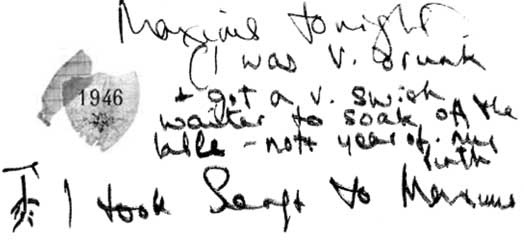 Maxims tonight
(I was v. drunk
1946
+ got a v. swish
waiter to soak off the
lable - note year of my
birth
I took Serge to Maxims